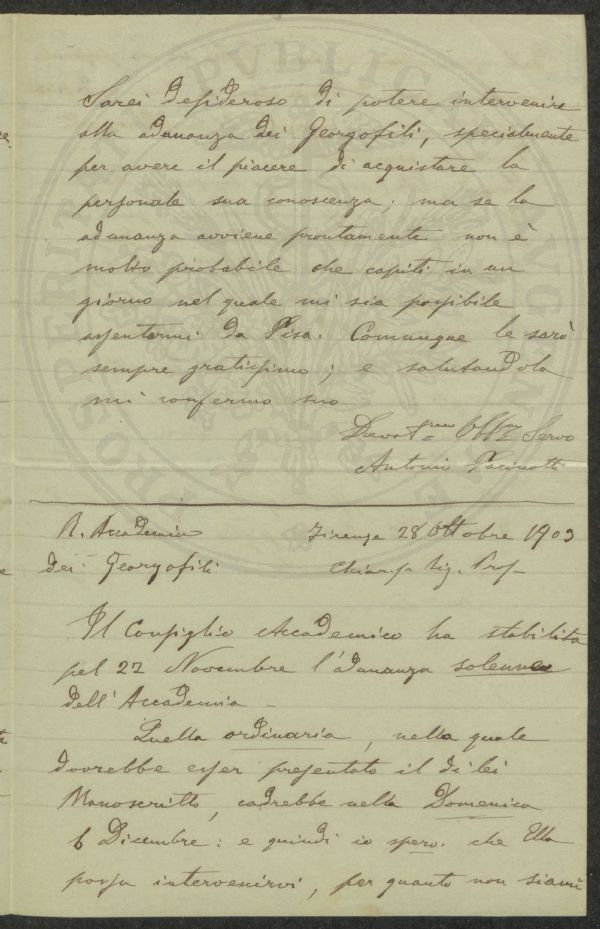 Sarei desideroso di potere intervenire
alla adunanza dei Georgofili, specialmente
per avere il piacere di acquistare la
personale sua conoscenza; ma se la
adunanza avviene prontamente non è
molto probabile che capiti in un
giorno nel quale mi sia possibile
assentarmi da Pisa. Comunque le sarò
sempre gratissimo; e salutandola
mi confermo suo
Devotmo Obbmo Servo
Antonio Pacinotti
R. Accademia Firenze 28 Ottobre 1903
dei Georgofili Chiar.mo Sig. Prof.
Il Consiglio Accademico ha stabilita
pel 22 Novembre l'adunanza solenne
dell'Accademia.
Quella ordinaria, nella quale
dovrebbe esser presentato il di lei
Manoscritto, cadrebbe nella Domenica
6 Dicembre: e quindi io spero che Ella
possa intervenirvi, per quanto non siami